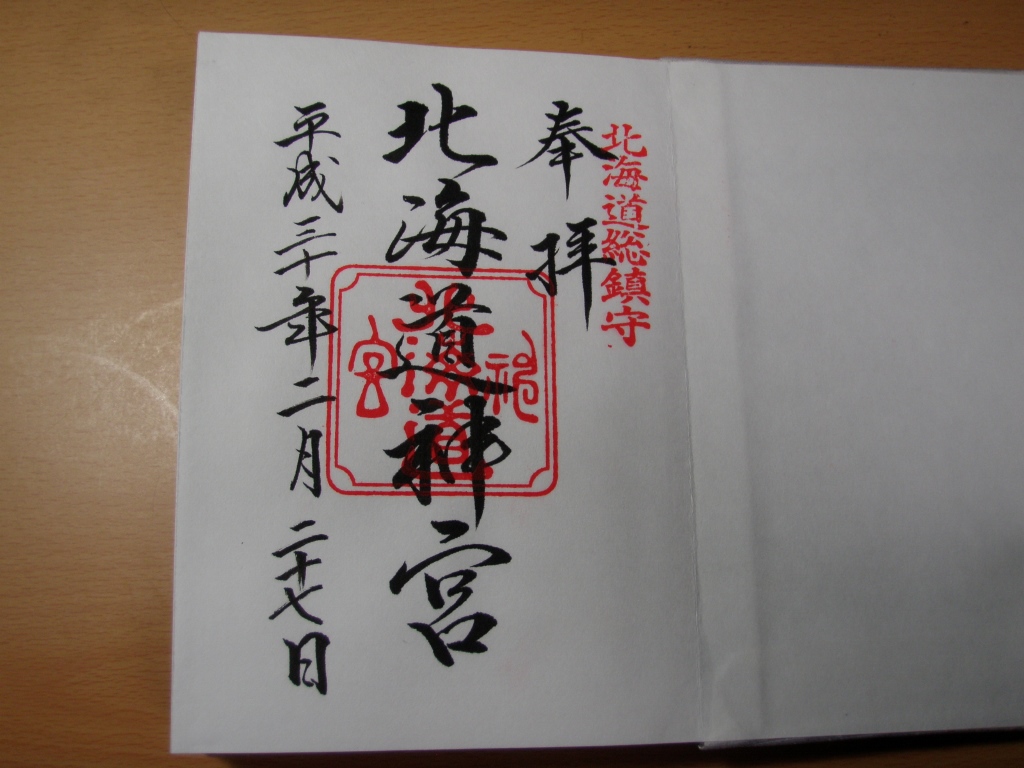 北海道総鎮守
奉拝
北海道神宮
平成三十年二月二十七日
北海道神宮